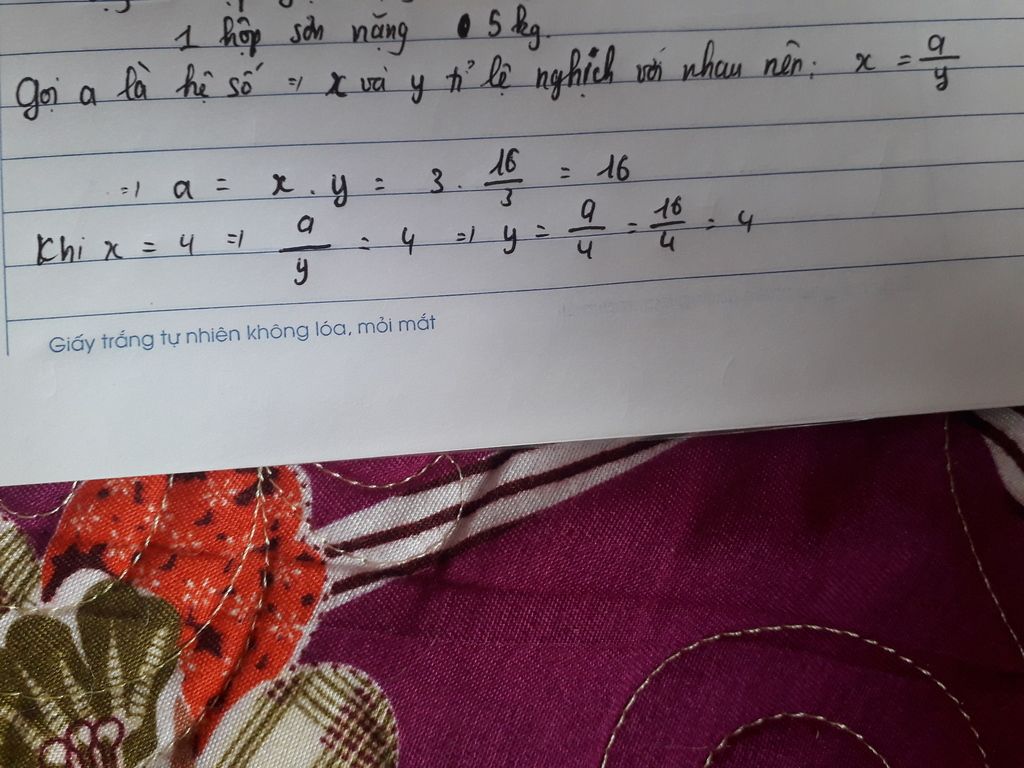 1 hộp sơn nặng 5 kg.
Gọi a là hệ số => x và y tỉ lệ nghịch với nhau nên: x = a/y
=> a = x . y = 3 . 16/3 = 16
Khi x = 4 => a/y = 4 => y = a/4 = 16/4 = 4
Giấy trắng tự nhiên không lóa, mỏi mắt